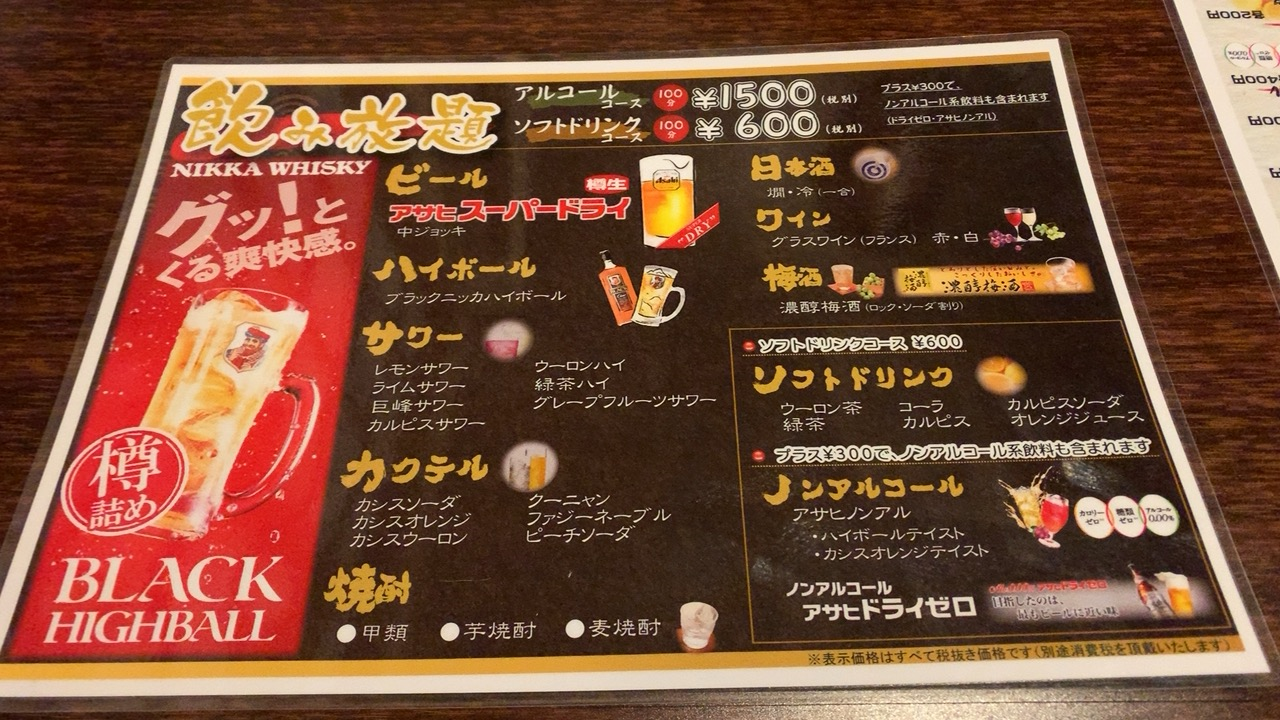 飲み放題
アルコールコース 100分 ¥1500(税別)
ソフトドリンクコース 100分 ¥600(税別)
プラス¥300で、
ノンアルコール系飲料も含まれます
(ドライゼロ・アサヒノンアル)
NIKKA WHISKY
グッ!と
くる爽快感。
樽詰め
BLACK
HIGHBALL
ビール
樽生
アサヒスーパードライ
中ジョッキ
Asahi
"DRY"
ハイボール
ブラックニッカハイボール
サワー
レモンサワー
ライムサワー
巨峰サワー
カルピスサワー
ウーロンハイ
緑茶ハイ
グレープフルーツサワー
カクテル
カシスソーダ
カシスオレンジ
カシスウーロン
クーニャン
ファジーネーブル
ピーチソーダ
焼酎
●甲類 ●芋焼酎 ●麦焼酎
日本酒
燗・冷(一合)
ワイン
グラスワイン(フランス) 赤・白
梅酒
濃醇梅酒
濃醇梅酒(ロック・ソーダ割り)
ソフトドリンクコース ¥600
ソフトドリンク
ウーロン茶
緑茶
コーラ
カルピス
カルピスソーダ
オレンジジュース
プラス¥300で、ノンアルコール系飲料も含まれます
ノンアルコール
アサヒノンアル
・ハイボールテイスト
・カシスオレンジテイスト
カロリーゼロ
糖類ゼロ
アルコール0.00%
ノンアルコール
アサヒドライゼロ
目指したのは、
最もビールに近い味
※表示価格はすべて税抜き価格です(別途消費税を頂戴いたします)
各200円